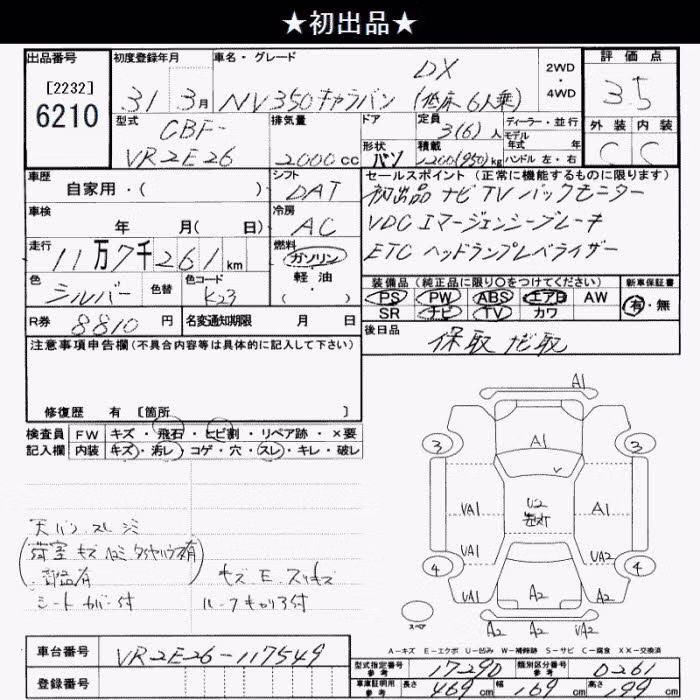 ★初出品★
出品番号
[2232]
6210
初度登録年月
31 3月
車名・グレード
DX
NV350キャラバン (低床 6人乗)
2WD
・
4WD
評価点
3.5
型式
CBF-
VR2E26
排気量
2000cc
ドア
形状
バン
定員
3(6)人
積載
1200(950)kg
ディーラー・並行
モデル
年式 年
ハンドル 左・右
外装 内装
C C
車歴
自家用・( )
シフト
DAT
セールスポイント (正常に機能するものに限ります)
初出品 ナビ TV バックモニター
VDC エマージェンシーブレーキ
ETC ヘッドランプレベライザー
車検
年 月( 日)
冷房
AC
走行
11万7千261km
燃料
ガソリン
軽・油
( )
色
シルバー
色替
色コード
K23
装備品 (純正品に限り○をつけてください)
PS PW ABS エアB AW
SR ナビ TV カワ
新車保証書
有・無
R券 8810円
名変通知期限 月 日
後日品
保取 ナビ取
注意事項申告欄 (不具合内容等は具体的に記入して下さい)
修復歴 有 [箇所 ]
検査員 FW キズ・飛石・ヒビ割・リペア跡・×要
記入欄 内装 キズ・汚レ・コゲ・穴・スレ・キレ・破レ
天バン スレ シミ
荷室 キズ 凹ミ タイヤハウス有
錆有
シートカバー付
キズ E スリキズ
ルーフキャリア付
A1
3 A1 3
VA1 U2 A1
VA1 UA2
4 A2 4
スペア
A2 A2 VA2
A-キズ E-エクボ U-凹み W-補修跡 S-サビ C-腐食 XX-交換済
車台番号 VR2E26-117549
登録番号
型式指定番号
参考
17290
類別区分番号
参考
0261
車庫証明用
参考
長さ 469cm 幅 169cm 高さ 199cm